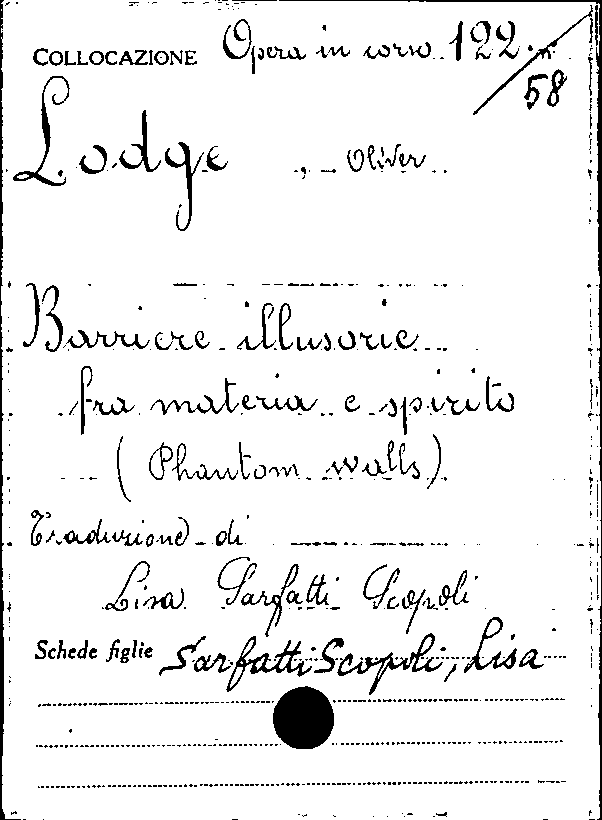 COLLOCAZIONE Opera in corso 122.n.
58
Lodge, Oliver
Barriere illusorie
fra materia e spirito
(Phantom walls)
Traduzione di
Lisa Sarfatti Scopoli
Schede figlie Sarfatti Scopoli, Lisa